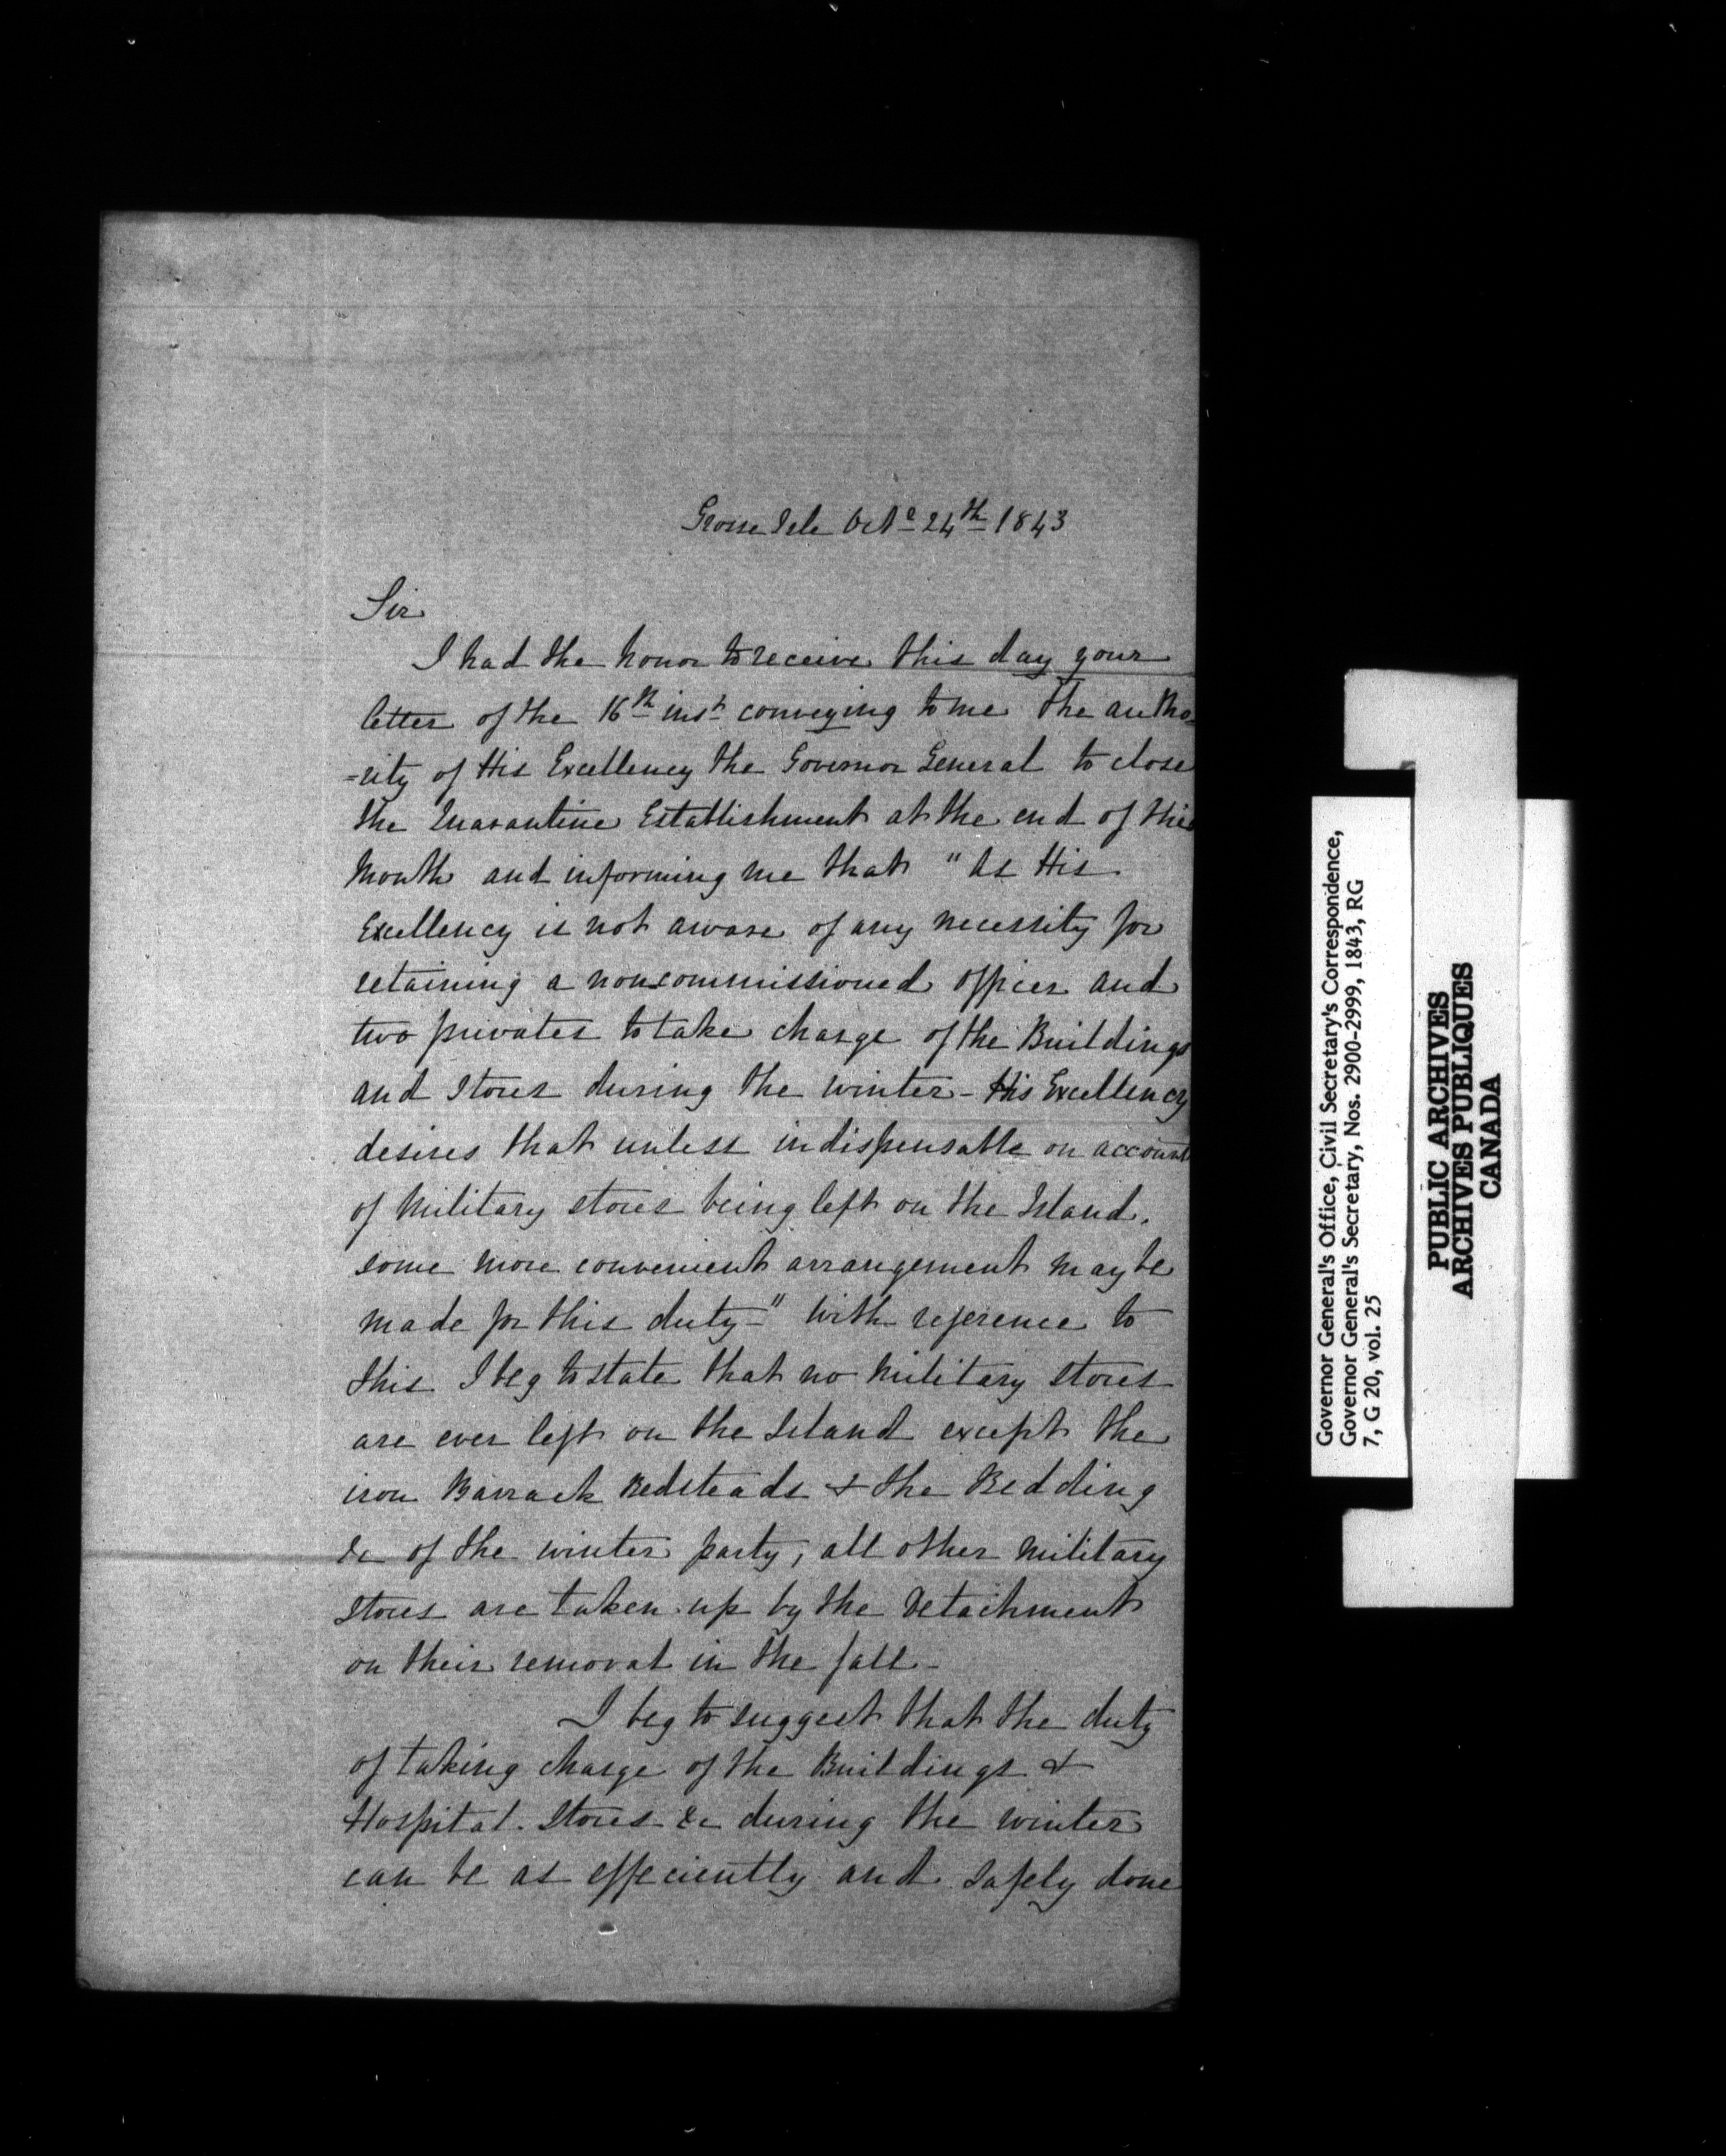 Grosse Isle Octr 24th 1843
Sir
I had the honor to receive this day your
letter of the 16th inst conveying to me the autho=
=rity of His Excellency the Governor General to close
the Quarantine Establishment at the end of this
Month and informing me that "As His
Excellency is not aware of any necessity for
retaining a noncommissioned officer and
two privates to take charge of the Buildings
and Stores during the winter - His Excellency
desires that unless indispensable on account
of Military stores being left on the Island.
some more convenient arrangement may be
made for this duty-" With reference to
this I beg to state that no Military stores
are ever left on the Island except the
iron Barrack Bedsteads & the Bedding
&c of the winter party, all other Military
Stores are taken up by the Detachment
on their removal in the fall-
I beg to suggest that the duty
of taking charge of the Buildings &
Hospital Stores &c during the winter
can be as effeciently and safely done
Governor General's Office, Civil Secretary's Correspondence,
Governor General's Secretary, Nos. 2900-2999, 1843, RG
7, G 20, vol. 25
PUBLIC ARCHIVES
ARCHIVES PUBLIQUES
CANADA